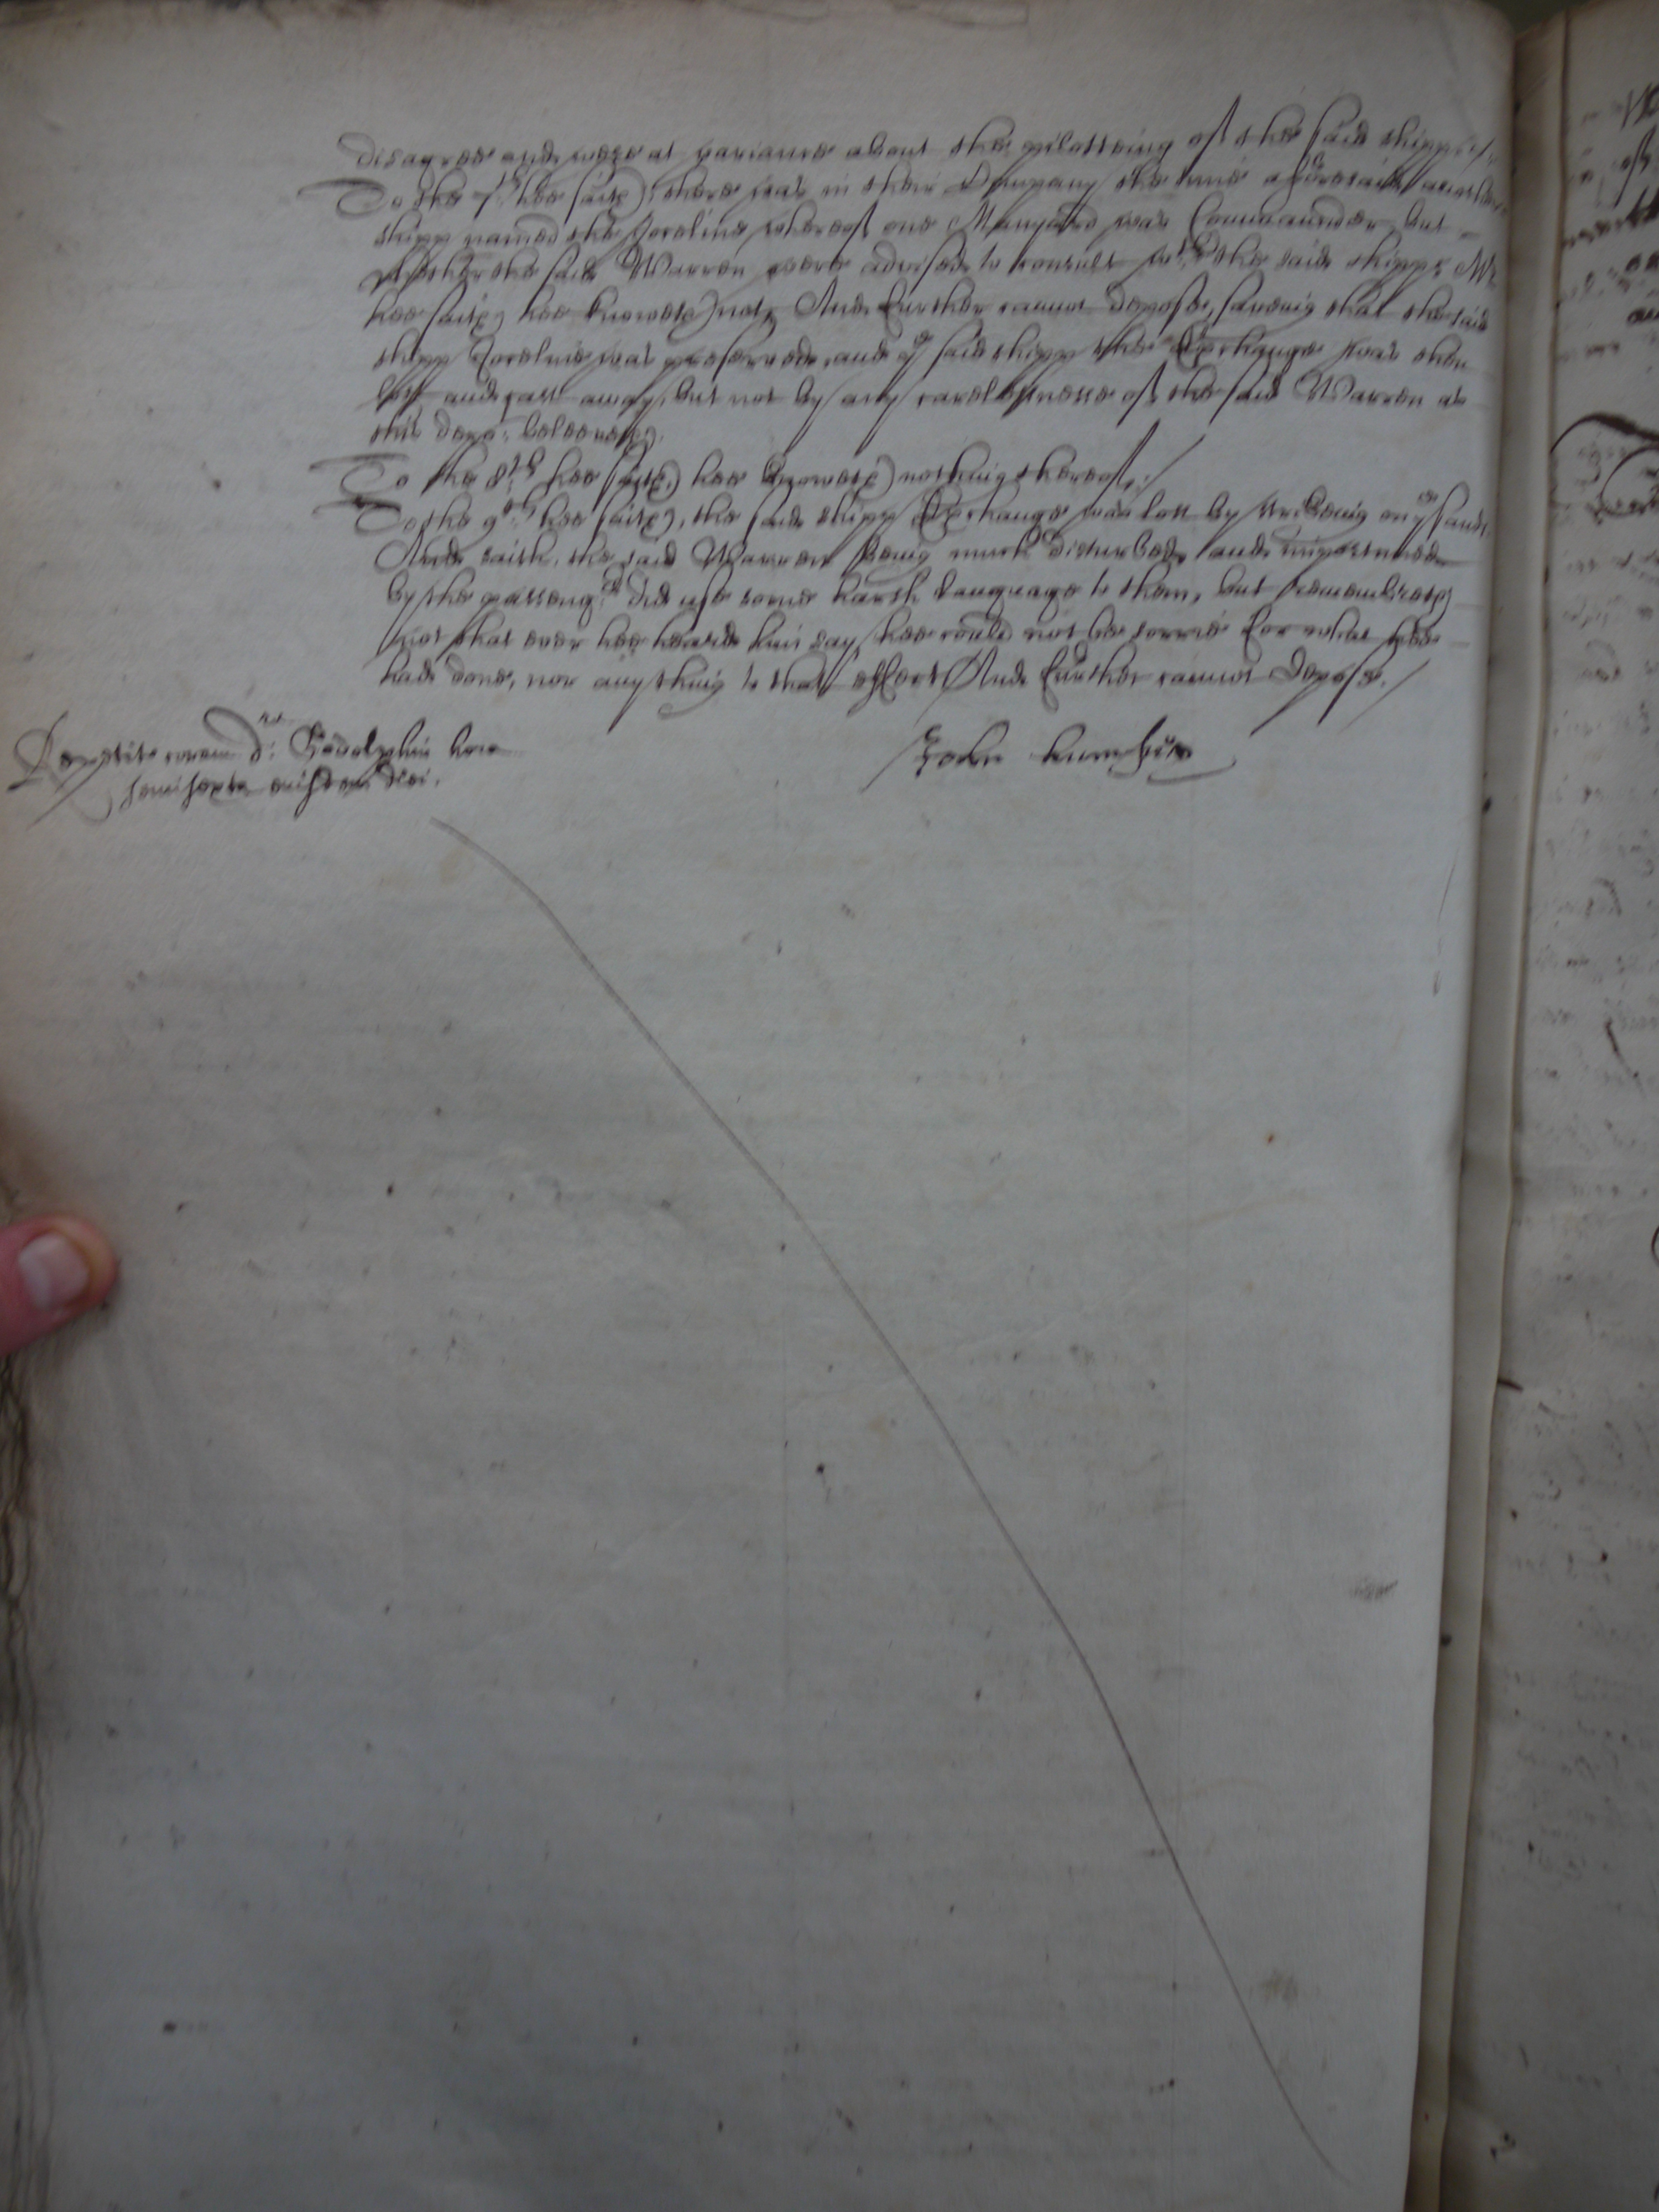 disagree and were at variance about the pilotteing of the said shipp./
To the 7th hee saith, there was in their Company the time aforesaid another
shipp named the Joceline whereof one Manyard was Commaunder, but
whether the said Warren were advised to consult wth the said shipps Mr
hee saith hee knoweth not, And further cannot depose, saveing that the said
shipp Joceline was preserved, and ye said shipp the Exchange was then
lost and cast away, but not by any carelessnesse of the said Warren as
this depot: beleeveth.
To the 8th hee saith, hee knoweth nothing thereof./
To the 9th hee saith, the said shipp Exchange was lost by strikeing on ye sand,
And saith, the said Warren being much disturbed, and importuned
by the passengrs did use some harsh language to them, but remembreth
not that ever hee heard him say, hee could not be sorrie for what hee
had done, nor any thing to that effect And further cannot depose./
Repetit coram dre: Godolphin hora
semisexta eiusdem diei.
John